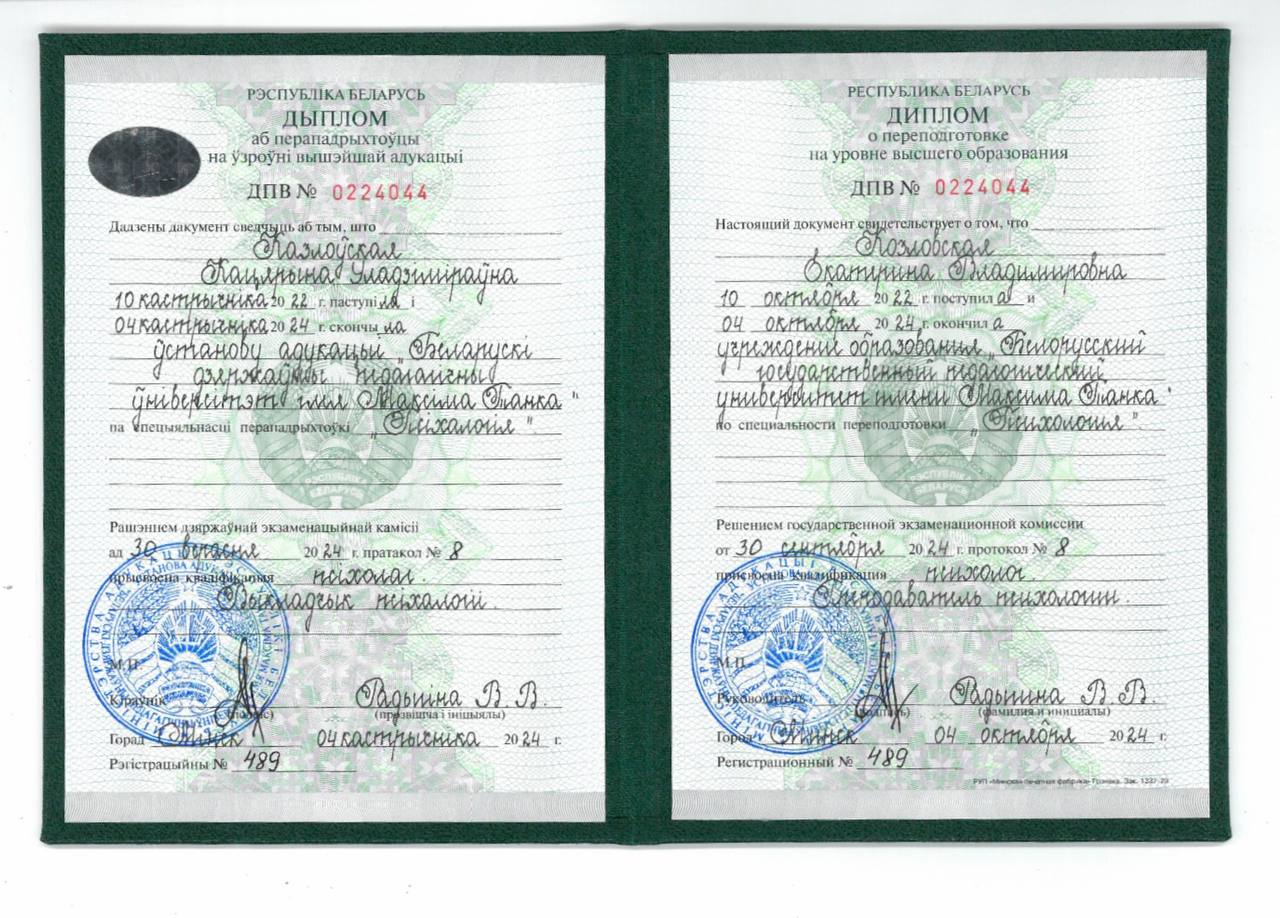 РЭСПУБЛІКА БЕЛАРУСЬ
ДЫПЛОМ
аб перападрыхтоўцы
на ўзроўні вышэйшай адукацыі
ДПВ № 0224044
Дадзены дакумент сведчыць аб тым, што
Казлоўская
Кацярына Уладзіміраўна
10 кастрычніка 20 22 г. паступі ла і
04 кастрычніка 20 24 г. скончы ла
ўстанову адукацыі „Беларускі
дзяржаўны педагагічны
ўніверсітэт імя Максіма Танка"
па спецыяльнасці перападрыхтоўкі „Псіхалогія".
Рашэннем дзяржаўнай экзаменацыйнай камісіі
ад 30 верасня 20 24 г. пратакол № 8
прысвоена кваліфікацыя псіхолаг.
Выкладчык псіхалогіі.
М.П.
Кіраўнік Радыгіна В. В.
(подпіс) (прозвішча і ініцыялы)
Горад Мінск 04 кастрычніка 20 24 г.
Рэгістрацыйны № 489
РЕСПУБЛИКА БЕЛАРУСЬ
ДИПЛОМ
о переподготовке
на уровне высшего образования
ДПВ № 0224044
Настоящий документ свидетельствует о том, что
Козловская
Екатерина Владимировна
10 октября 20 22 г. поступил а и
04 октября 20 24 г. окончил а
учреждение образования „Белорусский
государственный педагогический
университет имени Максима Танка"
по специальности переподготовки „Психология".
Решением государственной экзаменационной комиссии
от 30 сентября 20 24 г. протокол № 8
присвоена квалификация психолог.
Преподаватель психологии.
М.П.
Руководитель Радыгина В. В.
(подпись) (фамилия и инициалы)
Город Минск 04 октября 20 24 г.
Регистрационный № 489
РУП «Минская печатная фабрика» Гознака. Зак. 1337-23